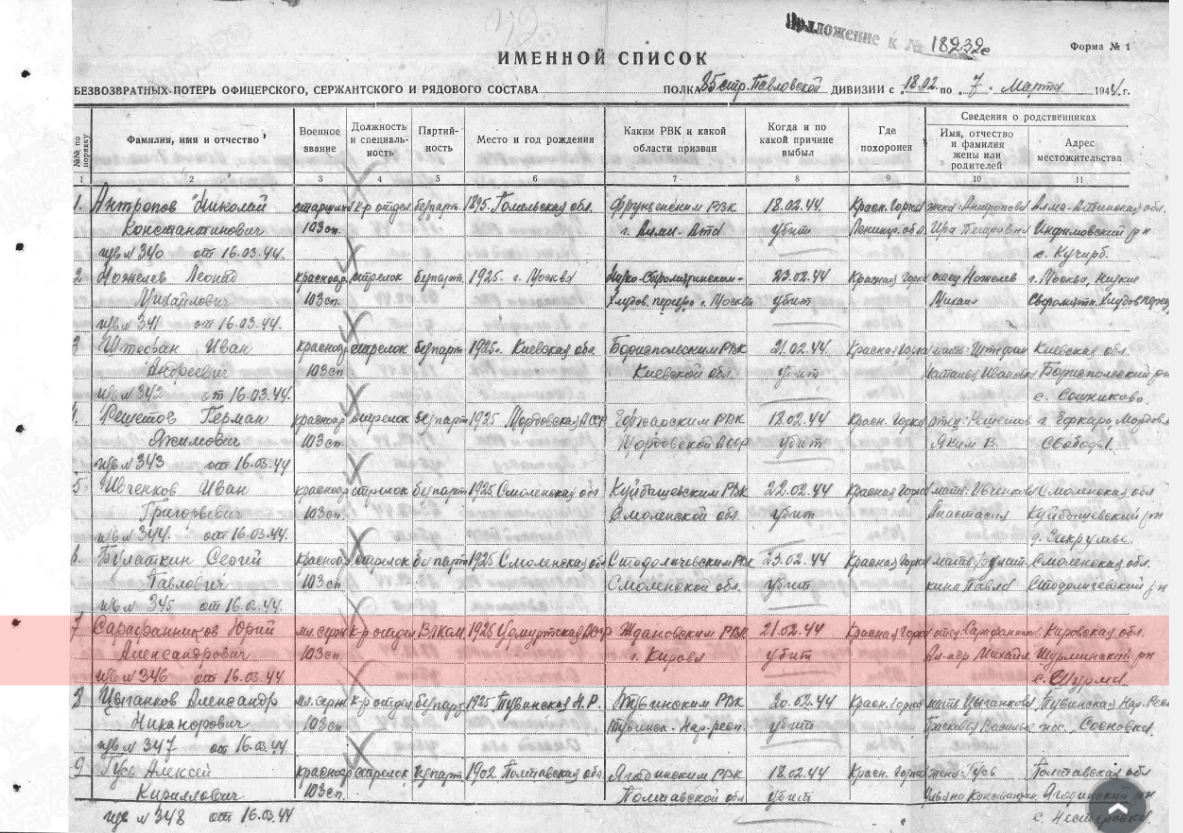 Приложение к № 18232с
Форма № 1
ИМЕННОЙ СПИСОК
БЕЗВОЗВРАТНЫХ ПОТЕРЬ ОФИЦЕРСКОГО, СЕРЖАНТСКОГО И РЯДОВОГО СОСТАВА ПОЛКА Павловской ДИВИЗИИ с 18.02. по 7 Марта 1944 г.
№№ по порядку
Фамилия, имя и отчество
Военное звание
Должность и специальность
Партийность
Место и год рождения
Каким РВК и какой области призван
Когда и по какой причине выбыл
Где похоронен
Сведения о родственниках
Имя, отчество и фамилия жены или родителей
Адрес местожительства
1 2 3 4 5 6 7 8 9 10 11
1. Антропов Николай старшина к-р отдел. беспарт. 1895. Гомельская обл. Фрунзенским РВК 18.02.44. Красн. Горка жена Антропова Алма-Атинская обл.
Константинович 103 сп. г. Алма-Ата убит Ленингр. обл. Петровна
изв № 340 от 16.03.44.
2 Ножелев Леонид красноар. стрелок беспарт. 1925. г. Москва 23.02.44 Красная Горка отец Ножелев г. Москва,
Михайлович 103 сп. г. Москва убит Михаил
изв № 341 от 16.03.44.
3 Штефан Иван красноар. стрелок беспарт. 1925г. Киевская обл. Бориспольским РВК 21.02.44. Красная Горка мать Штефан Киевская обл.
Андреевич 103 сп. Киевской обл. убит Ивановна Бориспольский р-н
изв № 342 от 16.03.44. с. Сошниково.
4. Решетов Герман красноар. стрелок беспарт. 1925 Мордовская АССР РВК 18.02.44 Красн. Горка отец Решетов
Якимович 103 сп. Мордовской АССР убит Яким В. Свобода 1.
изв № 343 от 16.03.44
5 Ивченков Иван красноар. стрелок беспарт 1925 Смоленская обл Куйбышевским РВК 22.02.44 Красная Горка мать Ивченкова Смоленская обл
Григорьевич 103 сп. Смоленской обл. убит Анастасия Куйбышевский р-н
изв № 344. от 16.03.44.
6. Булаткин Сергей красноар. стрелок беспарт 1925 Смоленская обл РВК 23.02.44 Красная Горка мать Смоленская обл.
Павлович 103 сп Смоленской обл. убит р-н
изв № 345 от 16.02.44.
7 Сарафанников Юрий мл. серж к-р отдел ВЛКСМ 1925 Удмуртская АССР Ждановским РВК 21.02.44 Красная Горка отец Сарафанников Кировская обл.
Александрович 103 сп. г. Кирова убит Ал-ндр Михайл Шурминский р-н
изв № 346 от 16.03.44 с. Шурма.
8 Цыганков Александр мл. серж к-р отдел беспарт 1925 Тувинская Н.Р. Тувинским РВК 20.02.44 Красн. Горка мать Цыганкова Тувинская Нар. Респ
Никанорович 103 сп Тувинск. Нар. респ. убит пос. Сосновка.
изв № 347 от 16.03.44
9 Гусь Алексей красноар стрелок беспарт 1902 Полтавская обл Яготинским РВК 18.02.44 Красн. Горка жена Гусь Полтавская обл
Кириллович 103 сп. Полтавской обл убит Ульяна Яготинский р-н
изв № 348 от 16.03.44